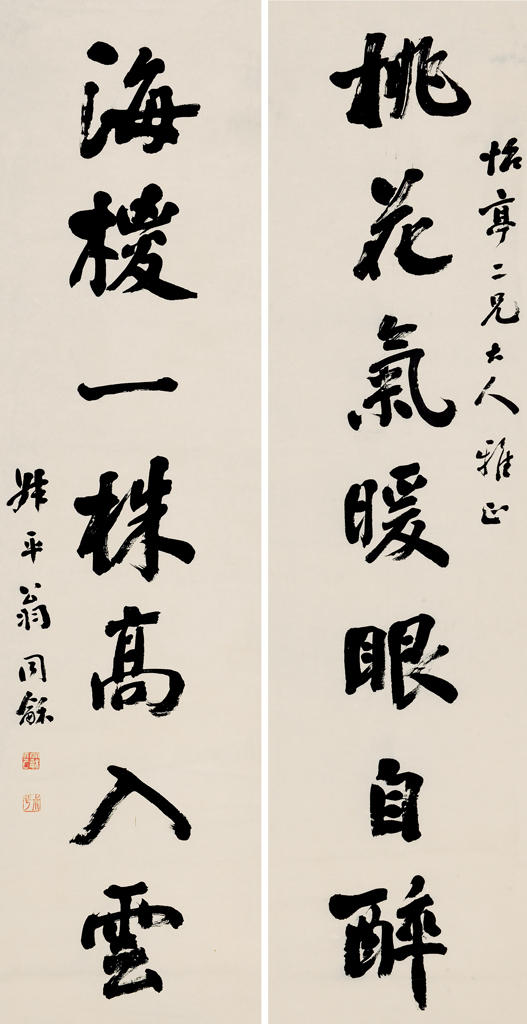 怡亭二兄大人雅正
桃花氣暖眼自醉
海椶一株高入雲
叔平翁同龢